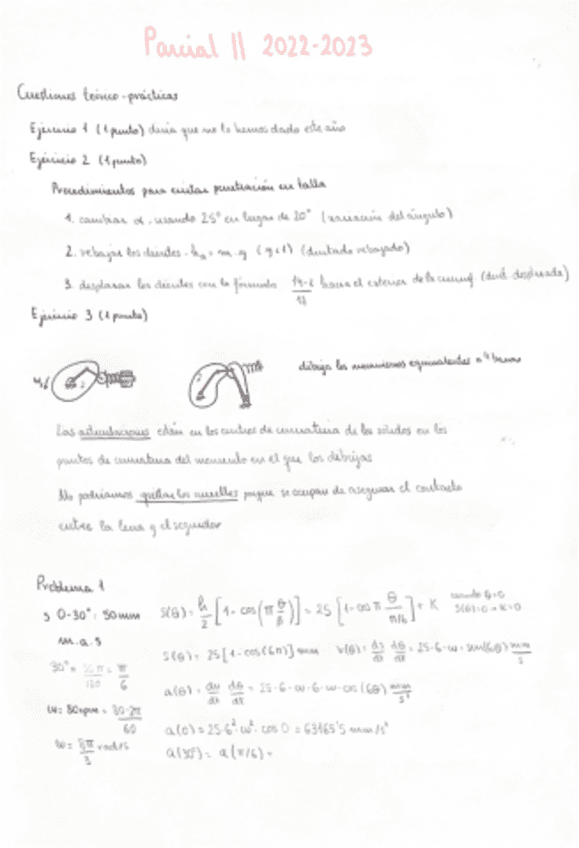 Parcial II 2022-2023
Cuestiones teórico-prácticas
Ejercicio 1 (1 punto) diría que no lo hemos dado este año
Ejercicio 2 (1 punto)
Procedimientos para evitar penetración en talla
1. cambiar α - usando 25° en lugar de 20° (variación del ángulo)
2. rebajar los dientes - (dentado rebajado)
3. desplazar los dientes con la fórmula hacia el exterior de la (dent. desplazada)
Ejercicio 3 (1 punto)
dibuja los mecanismos equivalentes a 4 barras
Las articulaciones están en los centros de curvatura de los sólidos en los
puntos de curvatura del momento en el que los dibujas
No podríamos quitar los muelles porque se ocupan de asegurar el contacto
entre la leva y el seguidor
Problema 1
s 0-30° : 50mm s(θ) = h/2 [1 - cos(π θ/β)] = 25 [1 - cos π θ/π/6] + K cuando θ=0 s(θ)=0 → K=0
m.a.s
s(θ) = 25 [1 - cos(6θ)] mm v(θ) = ds/dθ dθ/dt = 25·6·ω·sen(6θ) mm/s
30° = 30π/180 = π/6
a(θ) = dv/dθ dθ/dt = 25·6·ω·6·ω·cos(6θ) mm/s²
ω = 80rpm = 80·2π/60
a(0) = 25·6²·ω²·cos 0 = 63165'5 mm/s²
ω = 8π/3 rad/s
a(30°) = a(π/6) =